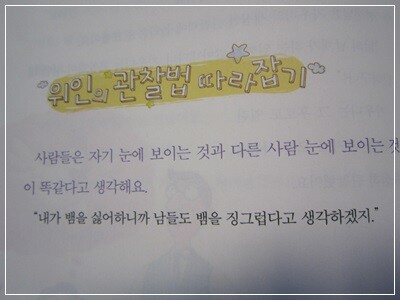 위인의 관찰법 따라잡기
사람들은 자기 눈에 보이는 것과 다른 사람 눈에 보이는 것
이 똑같다고 생각해요.
“내가 뱀을 싫어하니까 남들도 뱀을 징그럽다고 생각하겠지.”